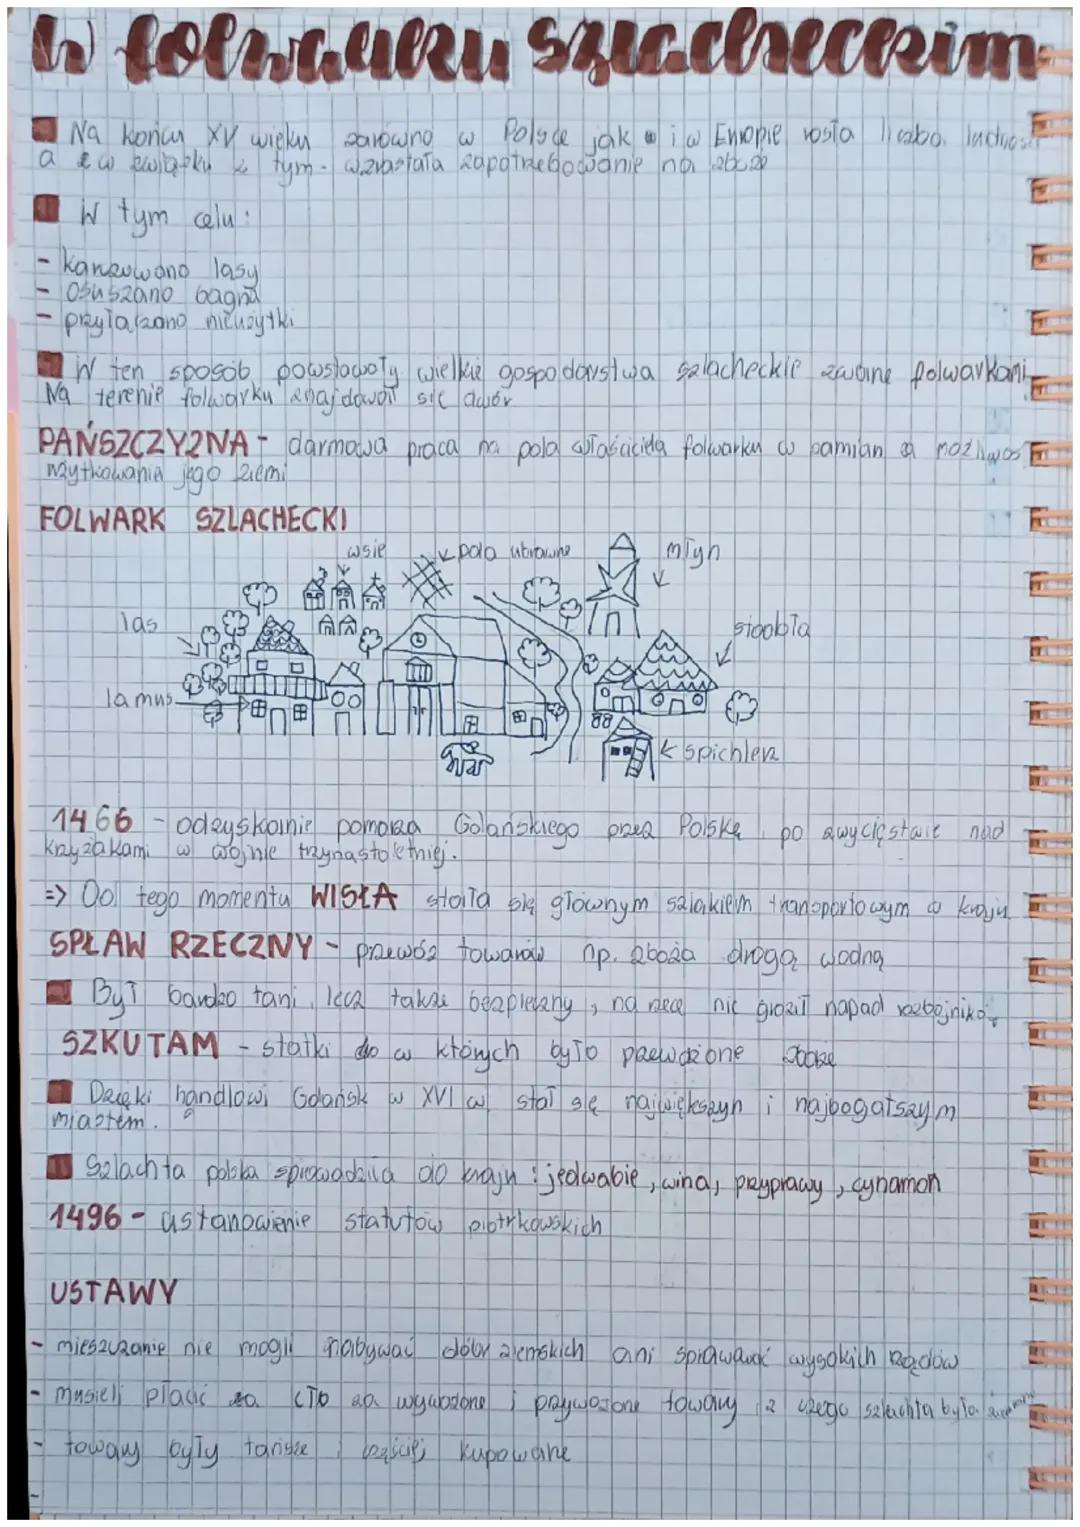 W folwarku szlacheckim
Na końcu XV wieku zarówno w Polsce jak i w Europie rosła liczba ludnosci
a w związku z tym - wzrastała zapotrzebowanie na zboże
W tym celu:
- karczowano lasy
- osuszano bagna
- przyłączono nieużytki
W ten sposób powstawały wielkie gospodarstwa szlacheckie zwane folwarkami
Na terenie folwarku znajdował się dwór
PAŃSZCZYZNA - darmowa praca na pola właściciela folwarku w zamian za możliwoś
użytkowania jego ziemi
FOLWARK SZLACHECKI
wsie pola uprawne młyn
las stodoła
lamus
spichlerz
1466 - odzyskanie pomorza Gdańskiego przez Polskę po zwycięstwie nad
krzyżakami w wojnie trzynastoletniej.
=> Od tego momentu WISŁA stała się głównym szlakiem transportowym w kraju
SPŁAW RZECZNY - przewóz towarów np. zboża drogą wodną
Był bardzo tani, lecz także bezpieczny, na rzece nie groził napad rozbójników
SZKUTAM - statki do w których było przewożone zboże
Dzięki handlowi Gdańsk w XVI w stał się największym i najbogatszym
miastem.
Szlachta polska sprowadziła do kraju: jedwabie, wina, przyprawy, cynamon
1496 - ustanowienie statutów piotrkowskich
USTAWY
- mieszczanie nie mogli nabywać dóbr ziemskich ani sprawować wysokich rzędów
- musieli płacić za cło za wywożone i przywożone towary z czego szlachta była
- towary były tańsze i częściej kupowane